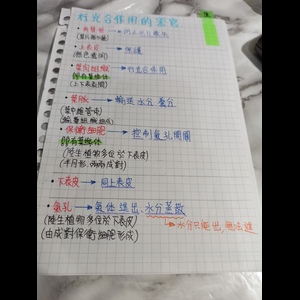 行光合作用的器官
•角質層 → 防止水分散失
(蠟質,無細胞)
•上表皮 → 保護
(無色透明)
•葉肉組織 → 行光合作用
含有葉綠體
(上下表皮間)
•葉脈 → 輸送水分養分
(葉中維管束)
•保衛細胞 → 控制氣孔開關
含有葉綠體
(陸生植物多位於下表皮)
(半月形,兩兩成對)
•下表皮 → 同上表皮
•氣孔 → 氣體進出、水分蒸散
(陸生植物多位於下表皮)
→ 水分只能出,無法進
(由成對保衛細胞形成)